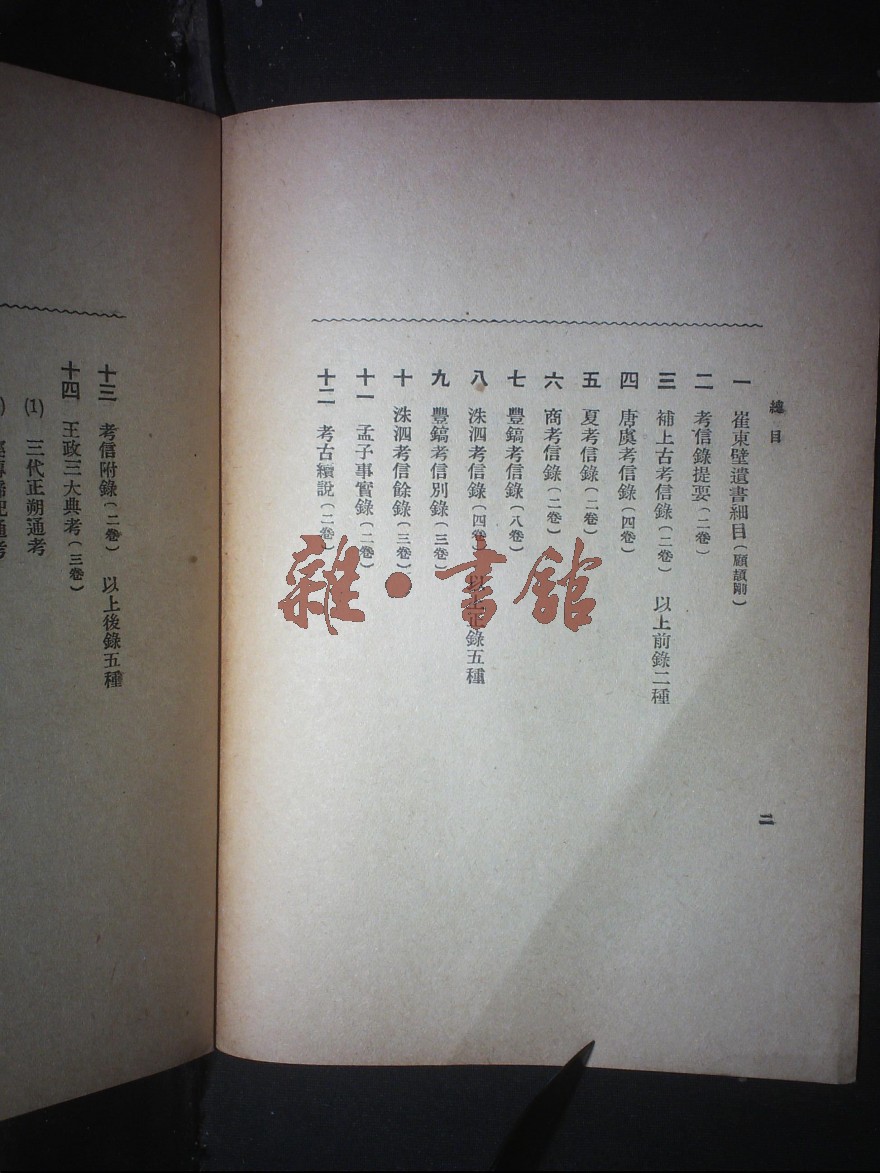 總目
二
一 崔東壁遺書細目(顧頡剛)
二 考信錄提要(二卷)
三 補上古考信錄(二卷) 以上前錄二種
四 唐虞考信錄(四卷)
五 夏考信錄(二卷)
六 商考信錄(二卷)
七 豐鎬考信錄(八卷)
八 洙泗考信錄(四卷) 以上正錄五種
九 豐鎬考信別錄(三卷)
十 洙泗考信餘錄(三卷)
十一 孟子事實錄(二卷)
十二 考古續說(二卷)
雜·書館
十三 考信附錄(二卷) 以上後錄五種
十四 王政三大典考(三卷)
(1) 三代正朔通考
通考